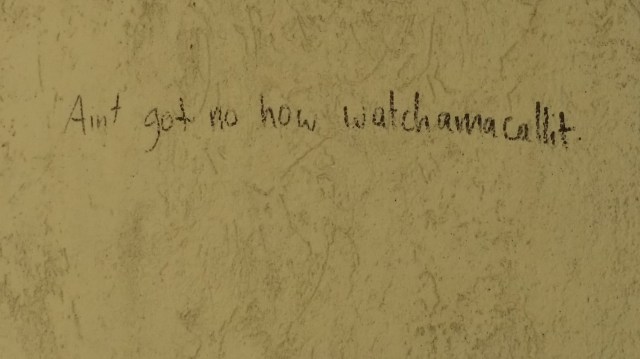 Aint got no how watchamacallit.